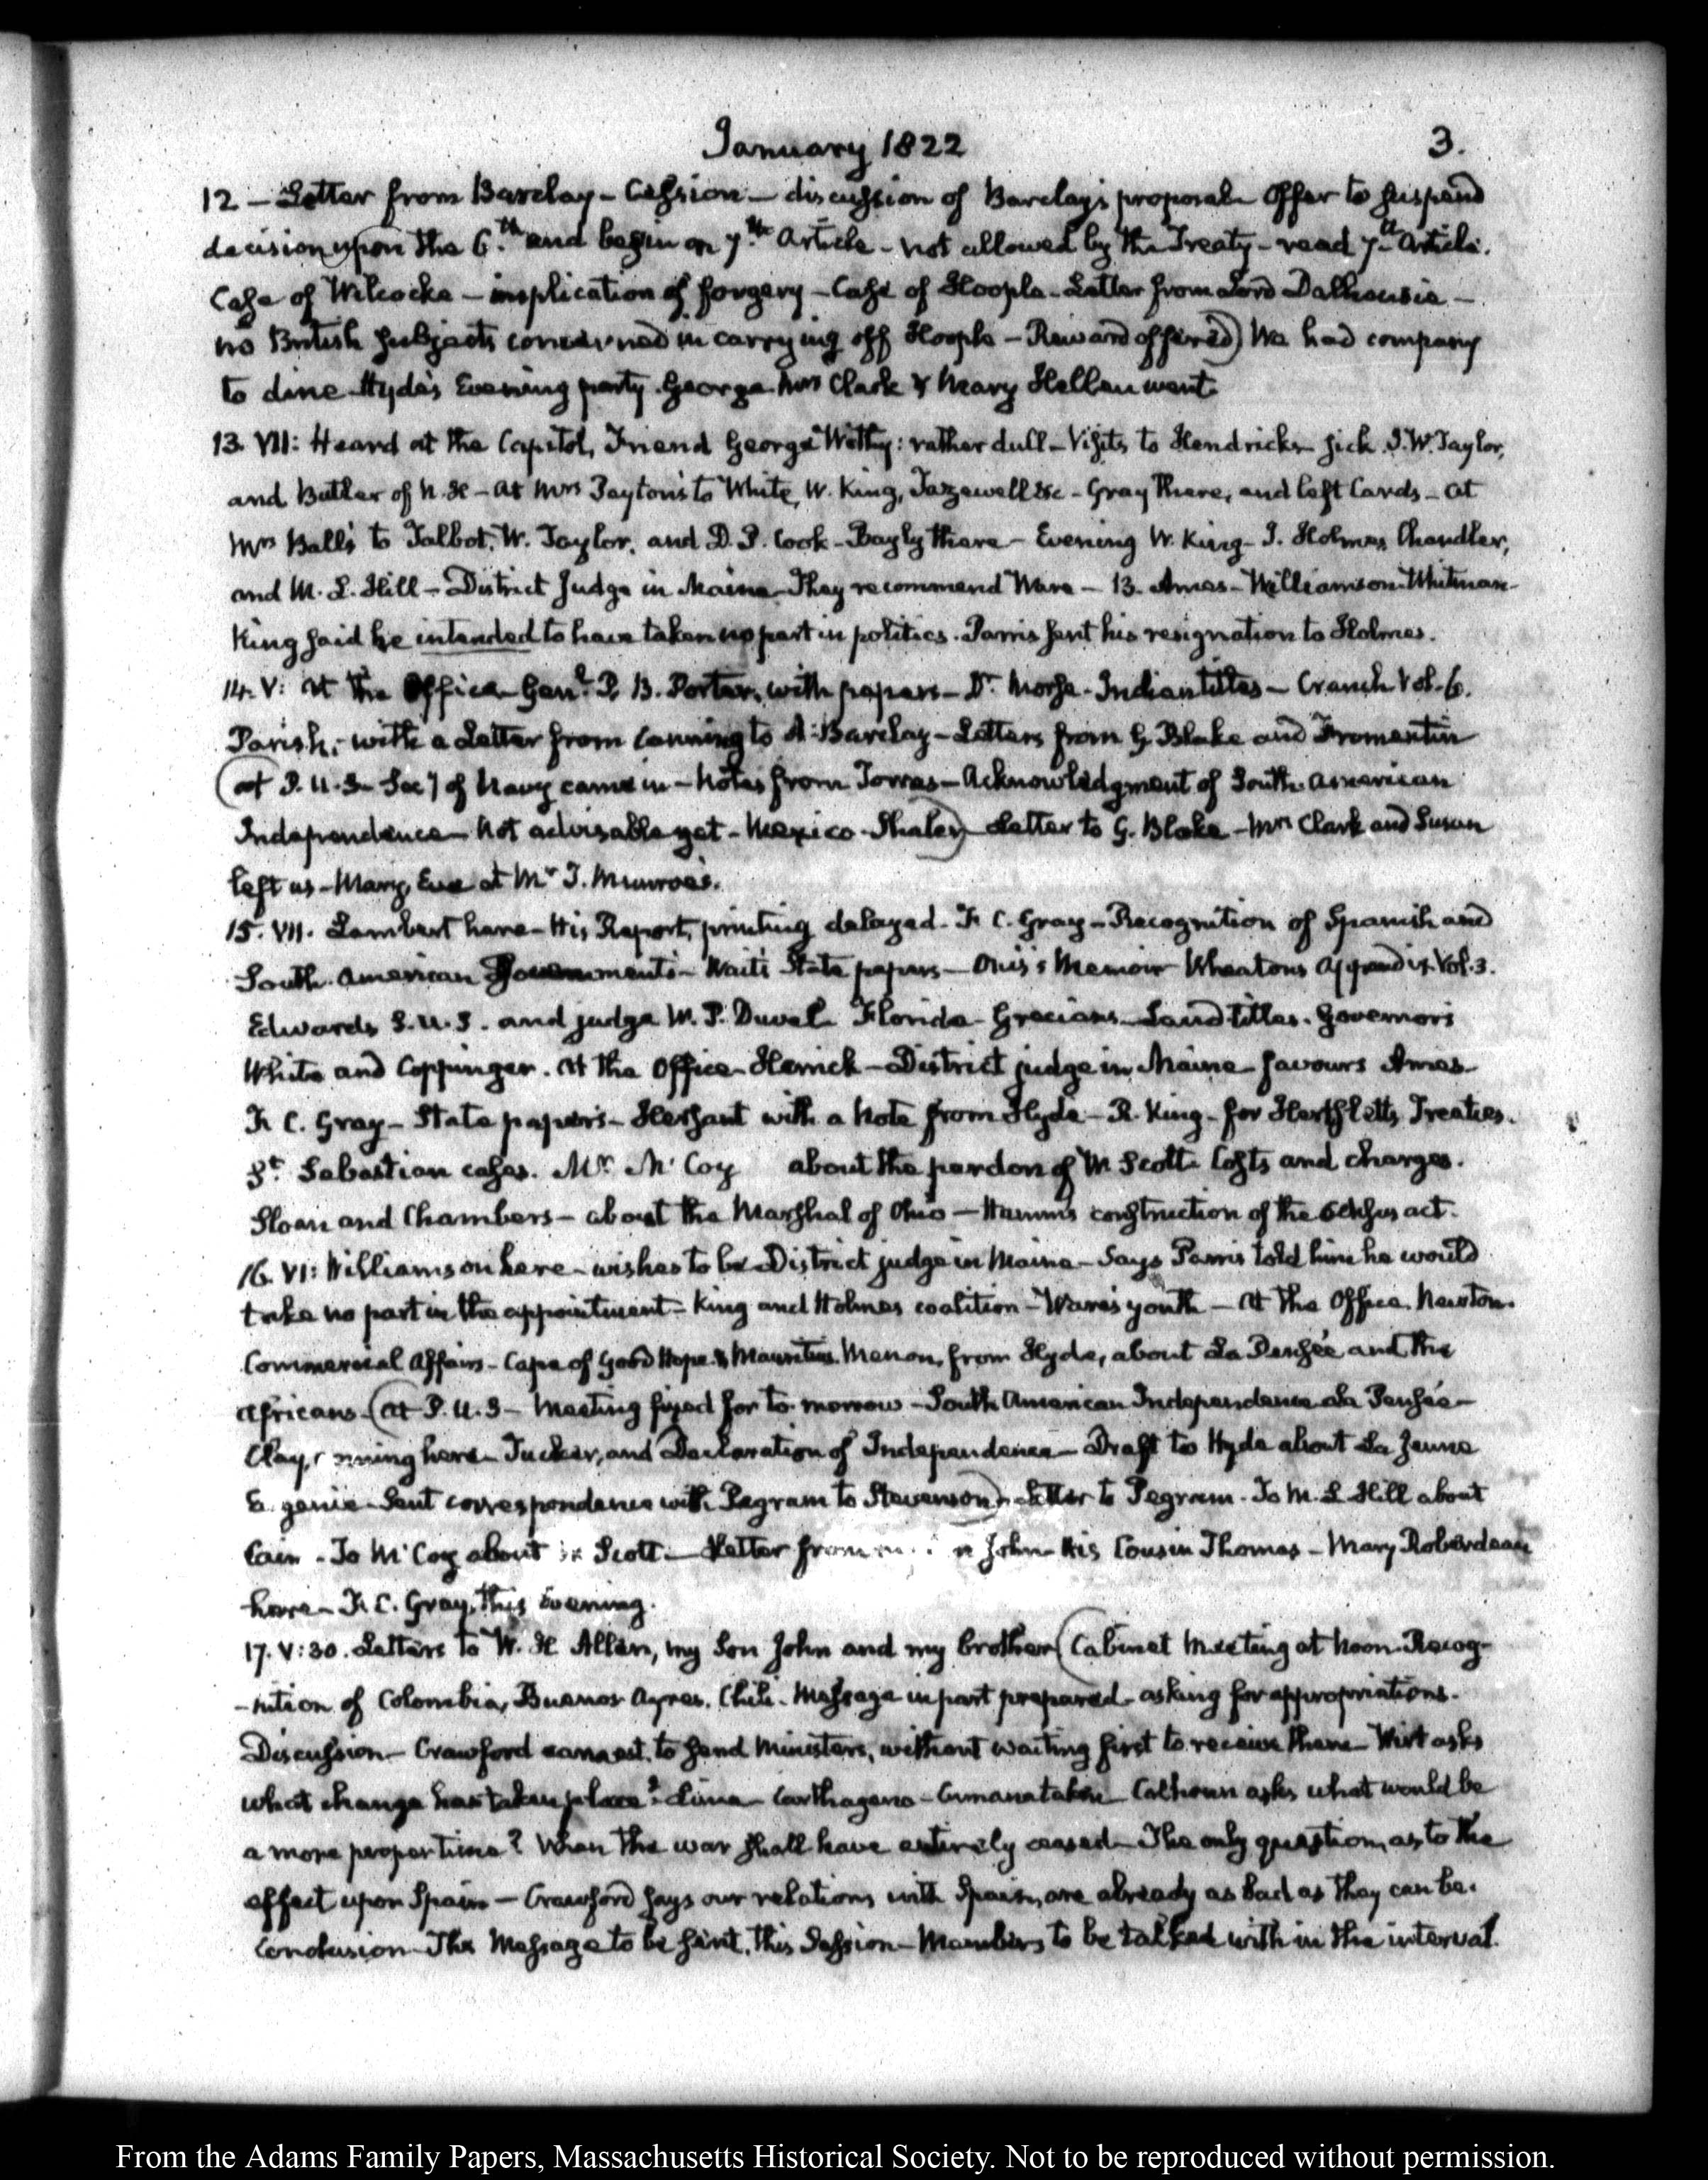 January 1822 3.
12 – Letter from Barclay – Cession – discussion of Barclay's proposal – Offer to suspend
decision upon the 6.th and begin on 7.th Article – not allowed by the Treaty – read 7.th Article.
Case of Wilcocke – implication of forgery – Case of Hoople – Letter from Lord Dalhousie –
no British subjects concerned in carrying off Hoople – Reward offered) We had company
to dine – Hyde's Evening party. George Mrs Clark & Mary Hellen went.
13. VII: Heard at the Capitol, Friend George Withy: rather dull – Visits to Hendricks sick. J. W. Taylor,
and Butler of N. H – at Mrs Peyton's to White, W. King, Tazewell &c – Gray there, and left Cards – at
Mrs Ball's to Talbot, W. Taylor, and D. P. Cook – Bayly there – Evening W. King – J. Holmes Chandler,
and M. L. Hill – District Judge in Maine – They recommend Ware – 13. Ames – Williamson – Whitman –
King said he intended to have taken no part in politics. Parris sent his resignation to Holmes.
14. V: At the Office – Genl. P. B. Porter, with papers – Dr. Morse – Indian titles – Cranch Vol. 6.
Parish, – with a Letter from Canning to A. Barclay – Letters from G. Blake and Fromentin
(at P. U. S – Secy of Navy came in – Notes from Torres – Acknowledgment of South American
Independence – Not advisable yet – Mexico – Shaler) Letter to G. Blake – Mrs Clark and Susan
left us – Mary, Eve at Mr J. Munroe's.
15. VII. Lambert here – His Report, printing delayed – F. C. Gray – Recognition of Spanish and
South American Governments – Wait's State papers – Onis's Memoir Wheaton's Appendix Vol. 3.
Edwards S. U. S. and judge W. P. Duval Florida – Grecians – Land titles – Governors
White and Coppinger. At the Office – Herrick – District judge in Maine – favours Ames –
F. C. Gray – State papers – Hersant with a Note from Hyde – R. King – for Hertsletts Treaties.
St. Sebastian cases. Mr. McCoy about the pardon of M Scott – Costs and charges.
Sloan and Chambers – about the Marshal of Ohio – Hamm's construction of the Census act.
16. VI: Williamson here – wishes to be District judge in Maine – Says Parris told him he would
take no part in the appointment – King and Holmes coalition – Ware's youth – At the Office. Newton.
Commercial Affairs – Cape of Good Hope & Mauritius. Menou, from Hyde, about La Pensée and the
Africans – (at P. U. S – Meeting fixed for to-morrow – South American Independence – La Pensée –
Clay, nning here – Tucker, and Declaration of Independence – Draft to Hyde about La Jeune
E genie – Sent correspondence with Pegram to Stevenson) – Letter to Pegram – To M. L Hill about
Cain – To McCoy about Scott – Letter from n John – His Cousin Thomas – Mary Roberdeau
here – F. C. Gray, this Evening.
17. V:30. Letters to W. H Allen, my Son John and my brother (Cabinet Meeting at Noon – Recog-
-nition of Colombia, Buenos Ayres, Chili – Message in part prepared – asking for appropriations.
Discussion – Crawford earnest to send Ministers, without waiting first to receive them – Wirt asks
what change has taken place? Lima – Carthagena – Cumana taken – Calhoun asks what would be
a more proper time? When the war shall have entirely ceased – The only question, as to the
effect upon Spain – Crawford says our relations with Spain, are already as bad as they can be.
Conclusion – The Message to be sent, this Session – Members to be talked with in the interval.
From the Adams Family Papers, Massachusetts Historical Society. Not to be reproduced without permission.